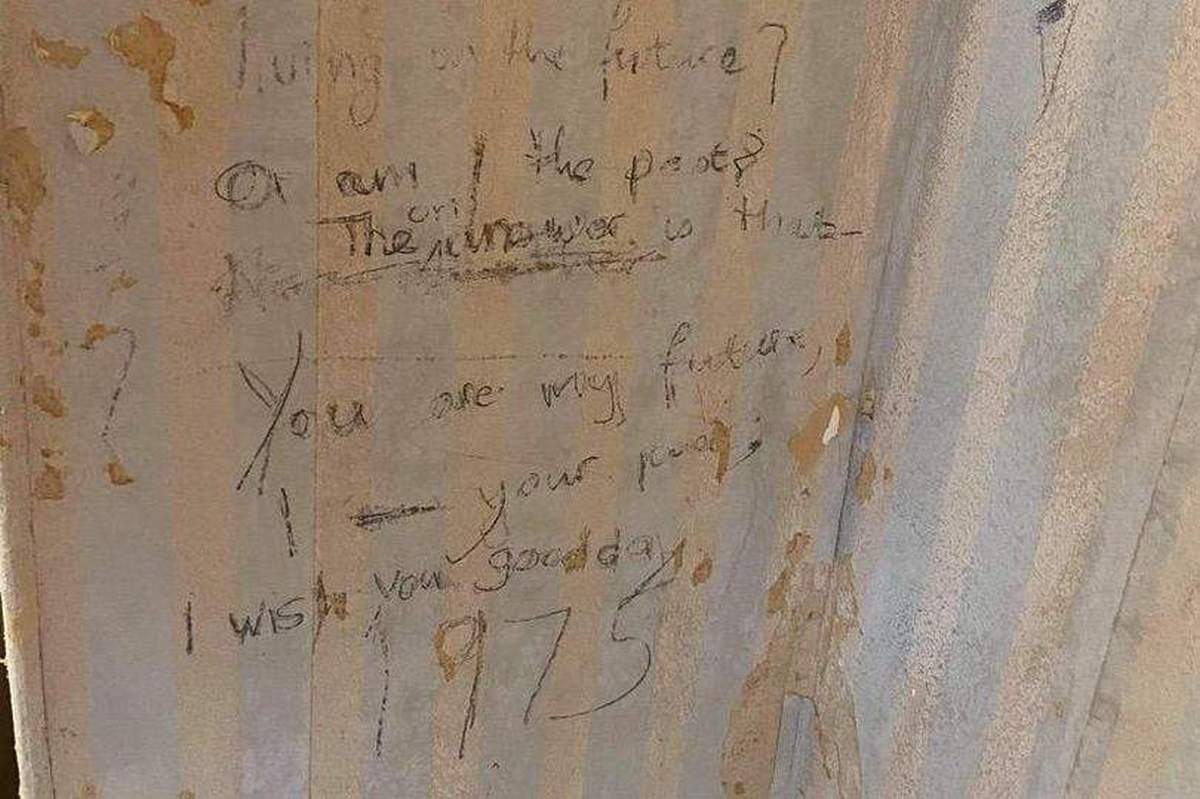 living in the future?
Or am I the past?
only
The answer is that
You are my future,
I — your past;
I wish you good day.
1975